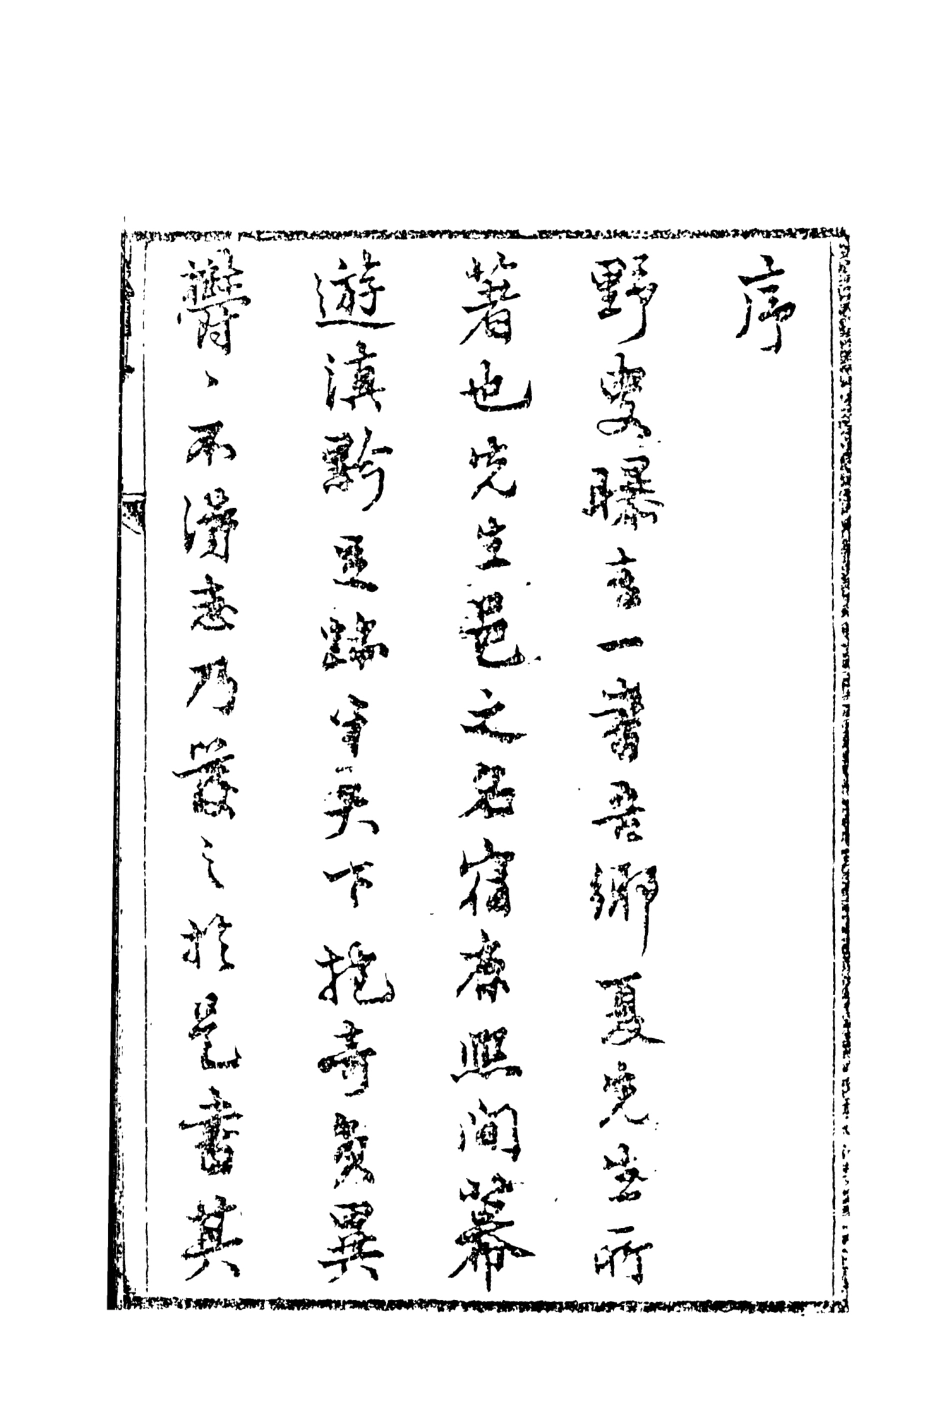 序
野叟曝言一書吾鄉夏先生所
著也先生邑之名宿康熙間幕
遊滇黔足蹟半天下抱奇負異
鬱〻不得志乃發之於是書其